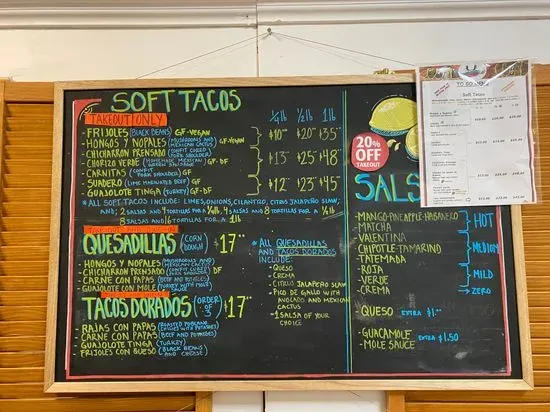 SOFT TACOS
TAKEOUT ONLY
1/4 lb 1/2 lb 1 lb
-FRIJOLES (BLACK BEANS) GF-VEGAN
-HONGOS Y NOPALES (MUSHROOMS AND MEXICAN CACTUS) GF-VEGAN
$10" $20" $35"
-CHICHARRON PRENSADO (CONFIT CUBED PORK SHOULDER)
-CHORIZO VERDE GF-DF
-CARNITAS (CONFIT PORK SHOULDER) GF-DF
$13" $25" $48"
-SUADERO (LIME MARINATED BEEF) GF-DF
-GUAJOLOTE TINGA (TURKEY) GF-DF
$12" $23" $45"
*ALL SOFT TACOS INCLUDE: LIMES, ONIONS, CILANTRO, CITRUS JALAPEÑO SLAW,
AND; 2 SALSAS AND 4 TORTILLAS FOR A 1/4 lb, 4 SALSAS AND 8 TORTILLAS FOR A 1/2 lb
8 SALSAS AND 16 TORTILLAS FOR A 1 lb
QUESADILLAS (CORN DOUGH) $17"
-HONGOS Y NOPALES (MUSHROOMS AND MEXICAN CACTUS)
-CHICHARRON PRENSADO (CONFIT CUBED PORK SHOULDER)
-CARNE CON PAPAS (BEEF AND POTATOES)
-GUAJOLOTE CON MOLE (TURKEY WITH MOLE SAUCE)
TACOS DORADOS (ORDER OF 3) $17"
-RAJAS CON PAPAS (ROASTED POBLANO PEPPERS WITH POTATOES)
-CARNE CON PAPAS (BEEF AND POTATOES)
-GUAJOLOTE TINGA (TURKEY)
-FRIJOLES CON QUESO (BLACK BEANS AND CHEESE)
*ALL QUESADILLAS
AND TACOS DORADOS
INCLUDE:
-QUESO
-CREMA
-CITRUS JALAPEÑO SLAW
-PICO DE GALLO WITH
AVOCADO AND MEXICAN
CACTUS
-1 SALSA OF YOUR
CHOICE
20%
OFF
TAKEOUT
SALS
-MANGO-PINEAPPLE-HABANERO
-MATCHA
HOT
-VALENTINA
-CHIPOTLE-TAMARINDO
-TATEMADA
MEDIUM
-ROJA
-VERDE
MILD
-CREMA
ZERO
-QUESO EXTRA $1."
-GUACAMOLE
-MOLE SAUCE EXTRA $1.50
TO GO MENU
Soft Tacos